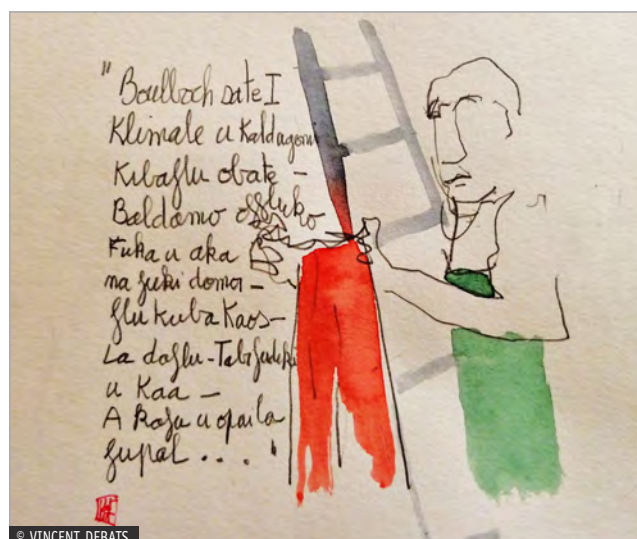 " Boulboch sate I
Klimale u Kaldagom
Kibaflu obate –
Baldamo offluko
Fuka u aka
na fuki doma –
flu kuba Kaos –
La daflu -
u Kaa –
A Kafu u opaila
fupal . . . "
© VINCENT DEBATS